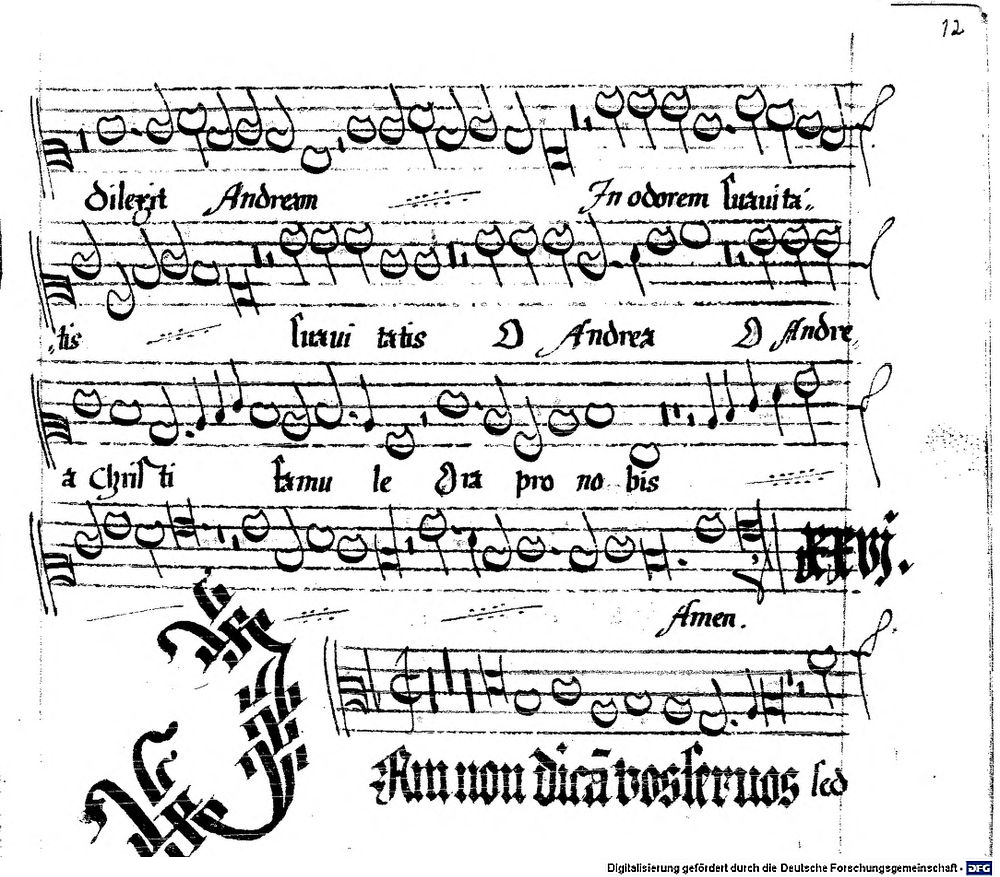 12
Dilexit Andream In odorem suauita
tis suaui tatis O Andrea O Andre
a Christi famu le Ora pro no bis
XXVJ.
Amen.
JAm non dicā vos seruos sed
Digitalisierung gefördert durch die Deutsche Forschungsgemeinschaft - DFG